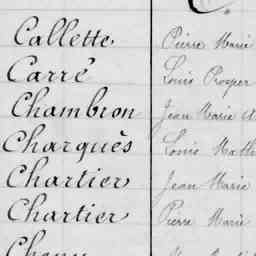 Callette Pierre Marie
Carré Louis Prosper
Chambron Jean Marie
Charquès Louis
Chartier Jean Marie
Chartier Pierre Marie